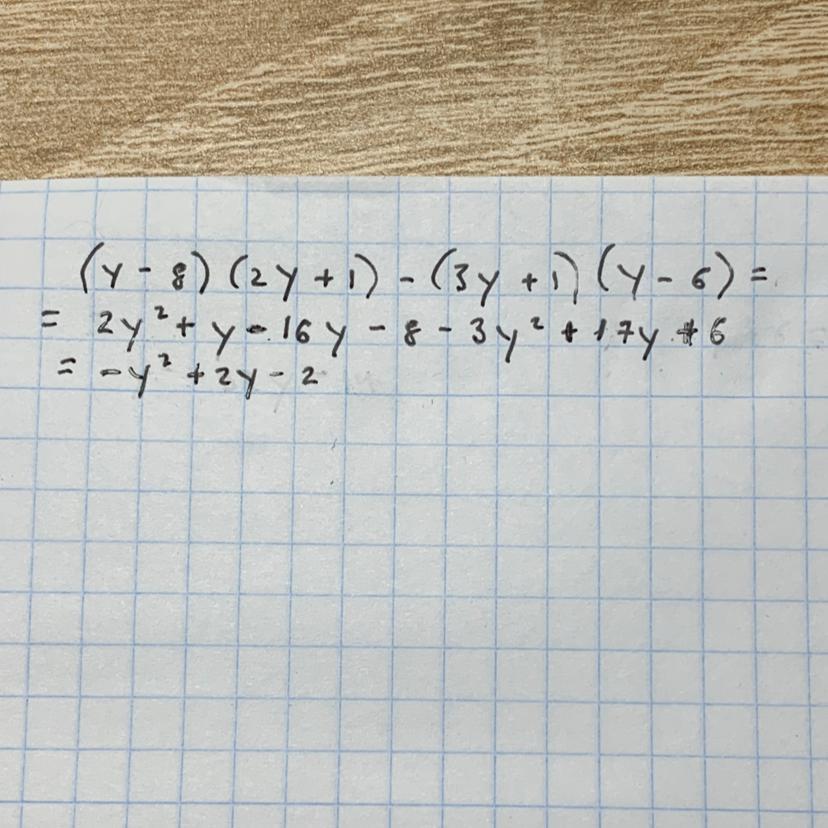 (y - 8) (2y + 1) - (3y + 1) (y - 6) =
= 2y² + y - 16y - 8 - 3y² + 17y + 6
= -y² + 2y - 2